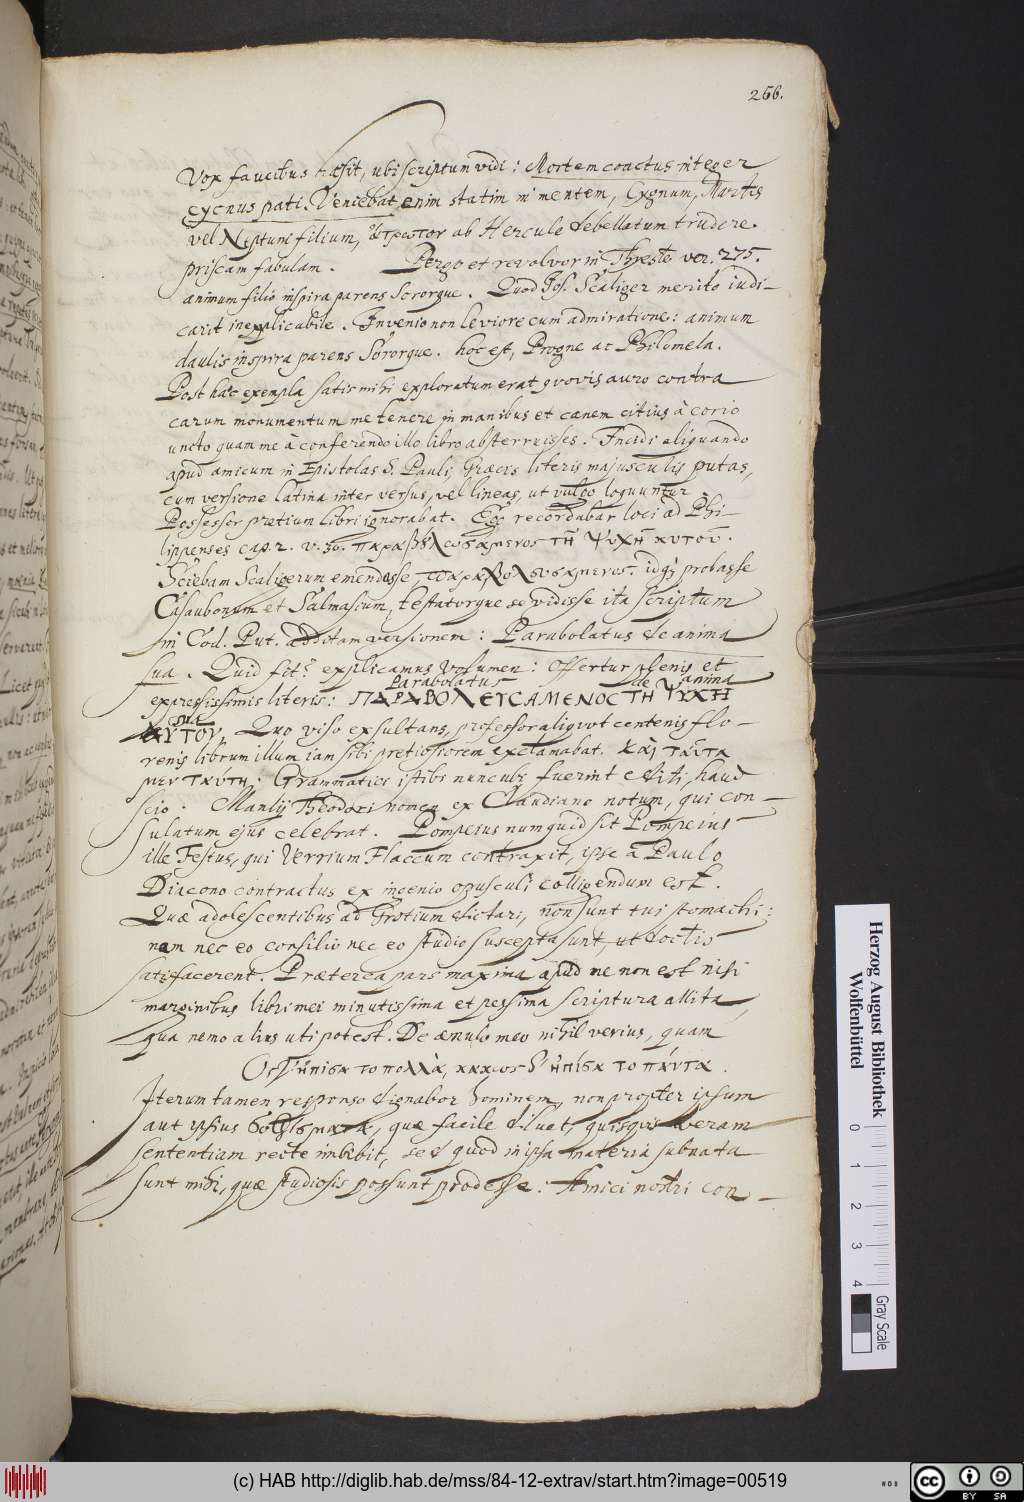 266.
Vox faucibus hæsit, ubi scriptum vidi: Mortem coactus integer
cycnus pati. Veniebat enim statim in mentem, Cygnum, Martis
vel Neptuni filium, ab Hercule debellatum trudere
priscam fabulam. Pergo et revolvor in Thyeste ver. 275.
animum filio inspira parens Sororque. Quod Jos. Scaliger merito iudi-
carit inexplicabile. Invenio non leviore cum admiratione: animum
daulis inspira parens Sororque. hoc est, Progne ac Philomela.
Post hæc exempla satis mihi exploratum erat quovis auro contra
carum monumentum me tenere in manibus et canem citius à corio
uncto quam me à conferendo illo libro absterruisses. Incidi aliquando
apud amicum in Epistolas S. Pauli, Græcis literis majusculis putas,
cum versione latina inter versus, vel lineas, ut vulgo loquuntur.
Possessor prætium libri ignorabat. Ego recordabar loci ad Phi-
lippenses cap. 2. v. 30. παραβουλευσάμενος τῇ ψυχῇ αυτοῦ.
Sciebam Scaligerum emendasse παραβολευσάμενος. idq; probasse
Casaubonum et Salmasium, testatorque se vidisse ita scriptum
in Cod. Put. additam versionem: Parabolatus de anima
sua. Quid fit? explicamus volumen: offertur plenis et
Parabolatus de anima
expressissimis literis: ΠΑΡΑΒΟΛΕΥCΑΜΕΝΟC ΤΗ ΨΥΧΗ
sua
ΑΥΤΟΥ. Quo viso exsultans, professor aliquot centenis flo-
renis librum illum iam sibi pretiosiorem exclamabat. καὶ ταῦτα
μεν ταύτῃ. Grammatici istihs nunculi fuerint editi, haud
scio. Manlij Theodori nomen ex Claudiano notum, qui con-
sulatum ejus celebrat. Pompeius numquid sit Pompeius
ille Festus, qui Verrium Flaccum contraxit, ipse a Paulo
Diacono contractus ex ingenio opusculi colligendum est.
Quæ adolescentibus ad Grotium dictavi, non sunt tui stomachi:
nam nec eo consilio nec eo studio suscepta sunt, ut doctis
satisfacerent. Præterea pars maxima apud me non est nisi
marginibus libri mei minutissima et pessima scriptura allita,
qua nemo alius uti potest. De æmulo meo nihil verius, quam
πολλὰ, κακῶς δ' ἠπίστατο πάντα.
Iterum tamen responso dignabor hominem, non propter ipsum
aut ipsius σοφίσματα, quæ facile diluet, quisquis veram
sententiam recte imbibit, sed quod in ipsa materia subnata
sunt mihi, quæ studiosis possunt prodesse. Amici nostri con-
Herzog August Bibliothek
Wolfenbüttel
0 1 2 3 4
Gray Scale
(c) HAB http://diglib.hab.de/mss/84-12-extrav/start.htm?image=00519
cc BY SA